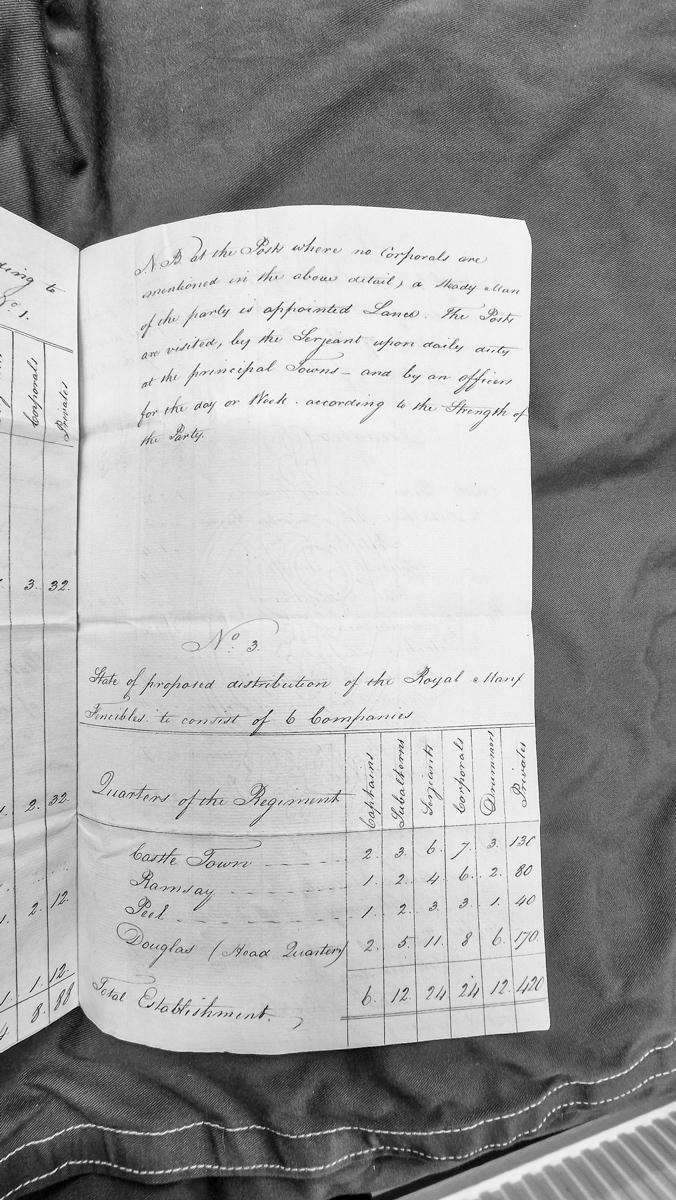 ding to
No. 1.
Corporals Privates
3. 32.
2. 32.
2. 12.
1. 1. 12.
4 8. 88
N.B. at the Posts where no Corporals are
mentioned in the above detail, a steady Man
of the party is appointed Lance. The Posts
are visited, by the Serjeant upon daily duty
at the principal Towns - and by an officer
for the day or Week. according to the Strength of
the Party.
No. 3.
State of proposed distribution of the Royal Manx
Fincibles. to consist of 6 Companies
Quarters of the Regiment Captains Subalterns Serjeants Corporals Drummers Privates
Castle Town 2. 3. 6. 7. 3. 130
Ramsay 1. 2. 4. 6. 2. 80
Peel 1. 2. 3. 3. 1. 40
Douglas (Head Quarters) 2. 5. 11. 8 6. 170.
Total Establishment. 6. 12. 24 24 12. 420